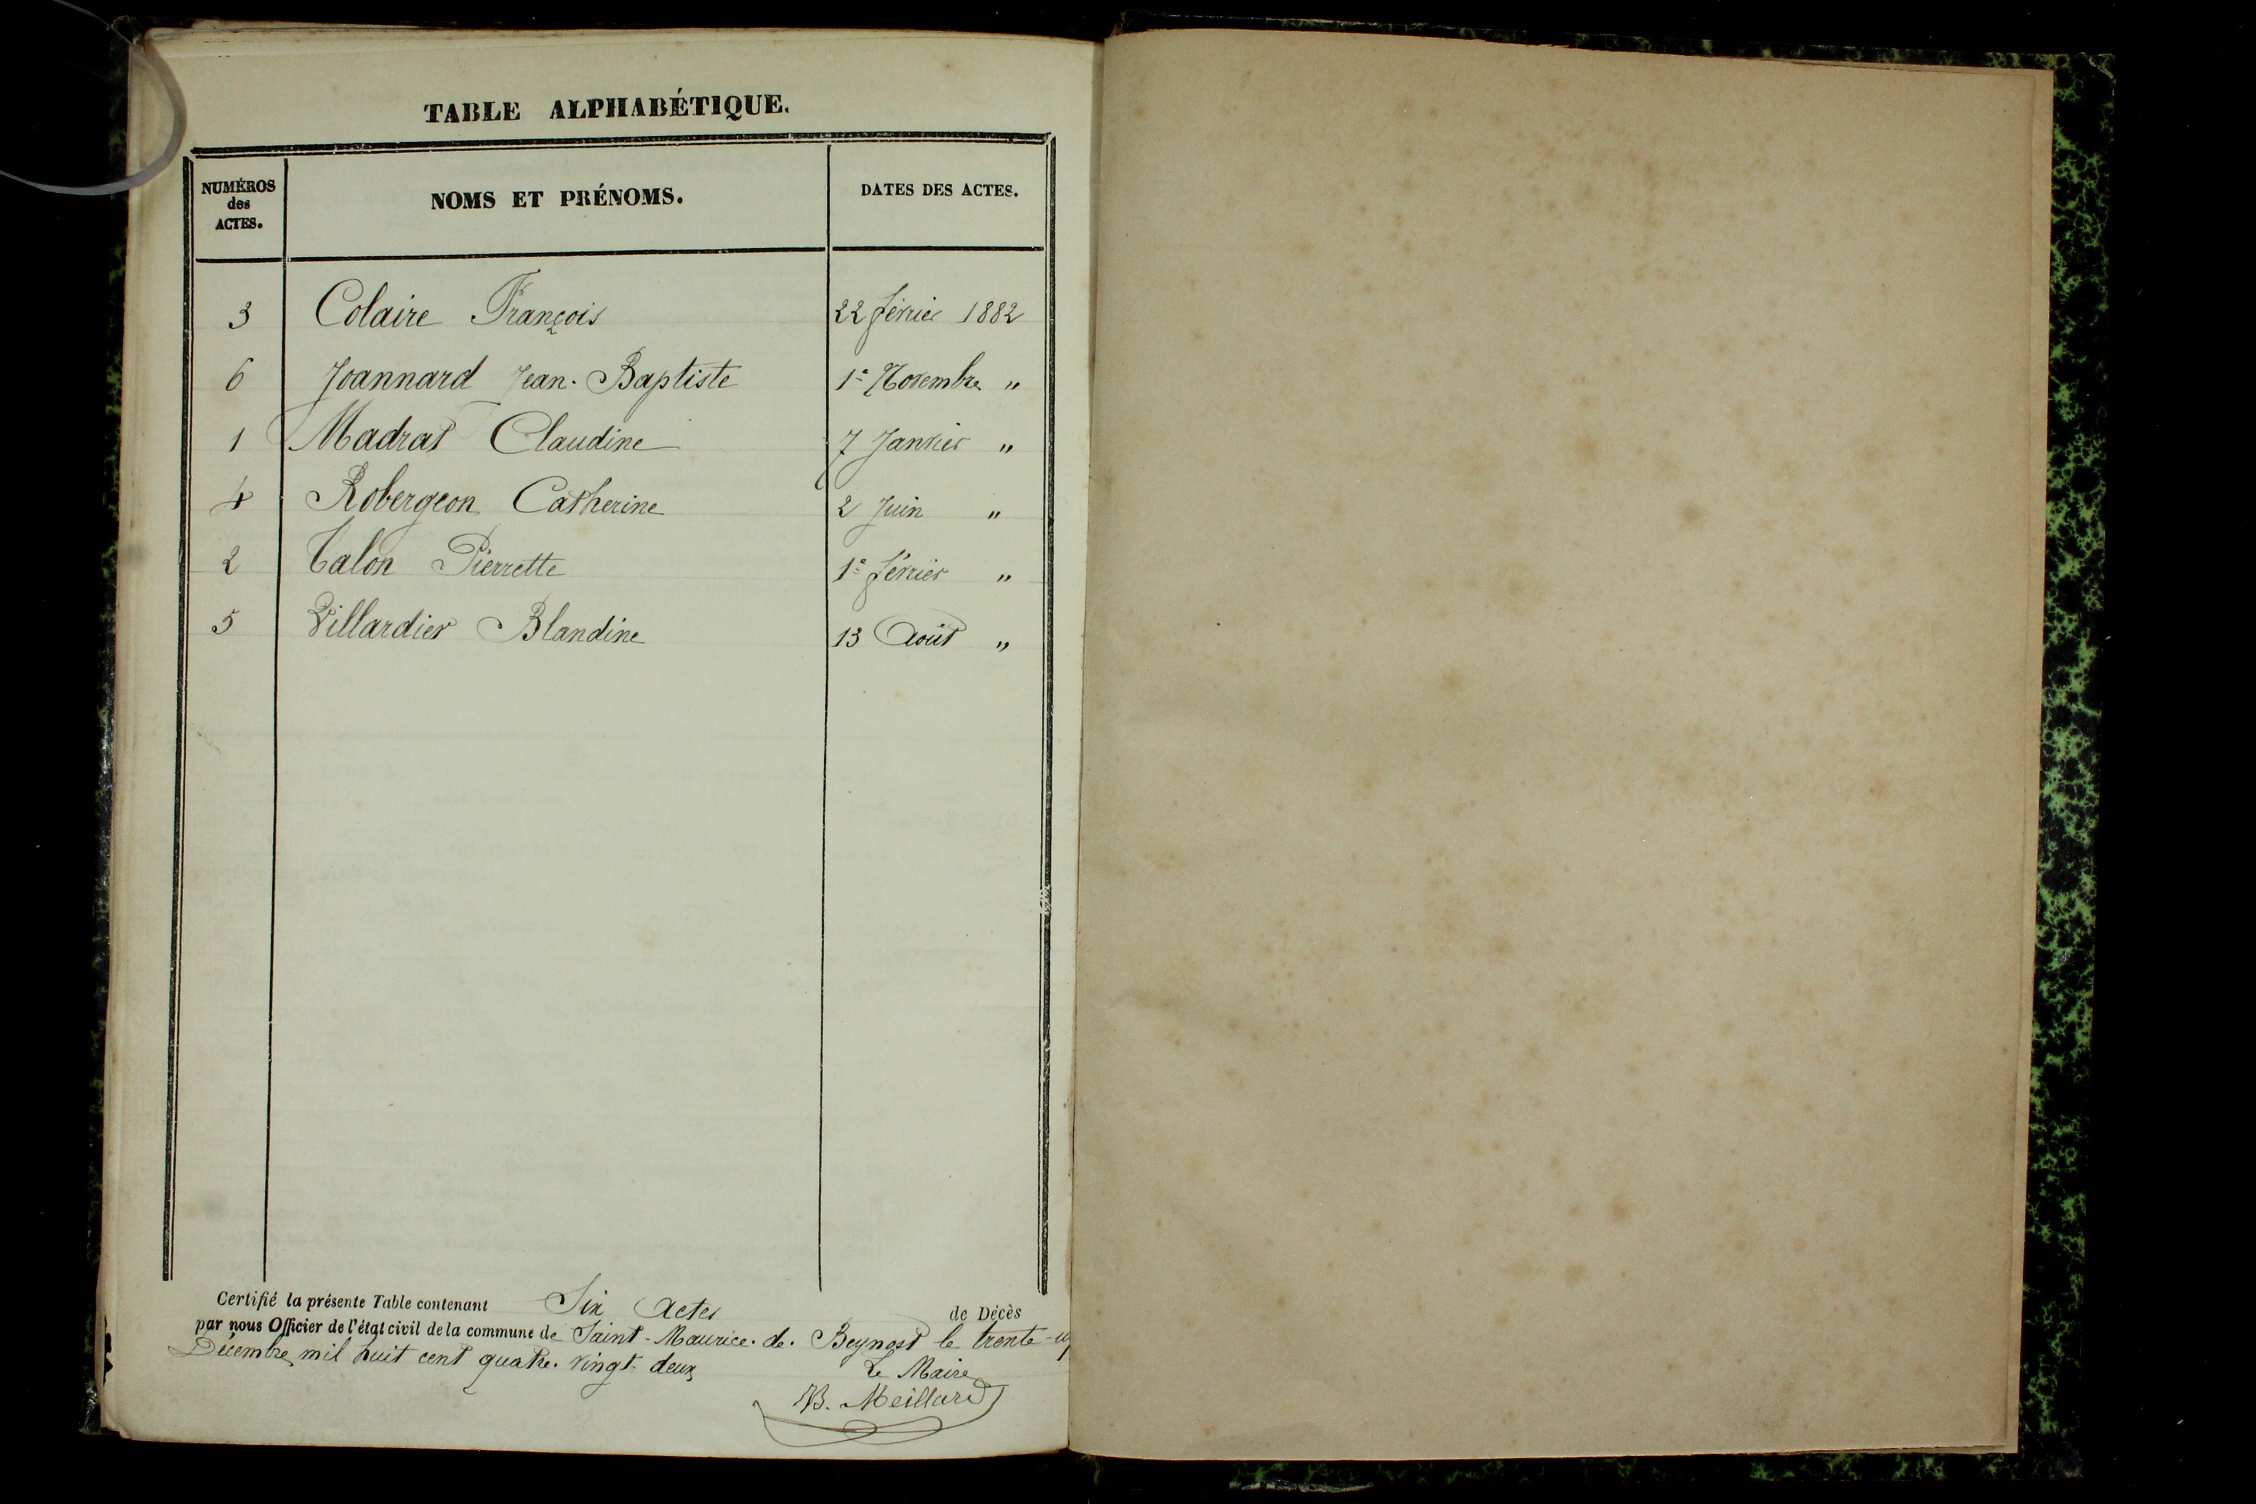 TABLE ALPHABÉTIQUE.
NUMÉROS des ACTES. NOMS ET PRÉNOMS. DATES DES ACTES.
3 Colaire François 22 février 1882
6 Joannard Jean-Baptiste 1er Novembre "
1 Madrat Claudine 7 Janvier "
4 Robergeon Catherine 2 Juin "
2 Talon Pierrette 1er février "
5 Villardier Blandine 13 Août "
Certifié la présente Table contenant Six Actes de Décès
par nous Officier de l'état civil de la commune de Saint-Maurice-de-Beynost le trente-un
Décembre mil huit cent quatre-vingt-deux
Le Maire
Meillard